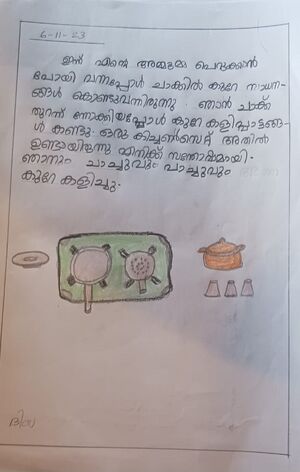 6-11-23
ഇന്ന് എന്റെ അമ്മൂമ്മ പെറുക്കാൻ
പോയി വന്നപ്പോൾ ചാക്കിൽ കുറേ സാധന-
ങ്ങൾ കൊണ്ടുവന്നിരുന്നു. ഞാൻ ചാക്ക്
തുറന്ന് നോക്കിയപ്പോൾ കുറേ കളിപ്പാട്ടങ്ങ-
ൾ കണ്ടു. ഒരു കിച്ചൺസെറ്റ് അതിൽ
ഉണ്ടായിരുന്നു എനിക്ക് സന്തോഷമായി.
ഞാനും ചാച്ചുവും പാച്ചുവും
കുറേ കളിച്ചു.